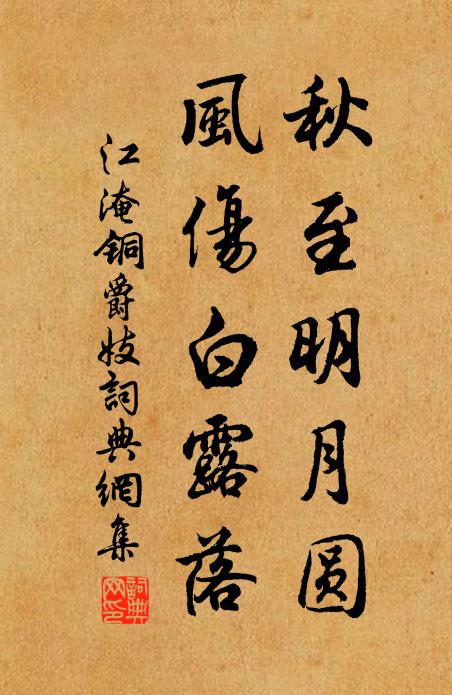 秋至明月圆
風傷白露落
江淹铜爵妓詞典網集
詞典网印